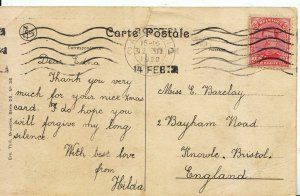 Carte Postale
14 FEB
Dear Edna
Thank you very
much for your nice Xmas
card. I do hope you
will forgive my long
silence.
With best love
from
Hilda
Miss E. Barclay
2 Bayham Road
Knowle, Bristol
England.